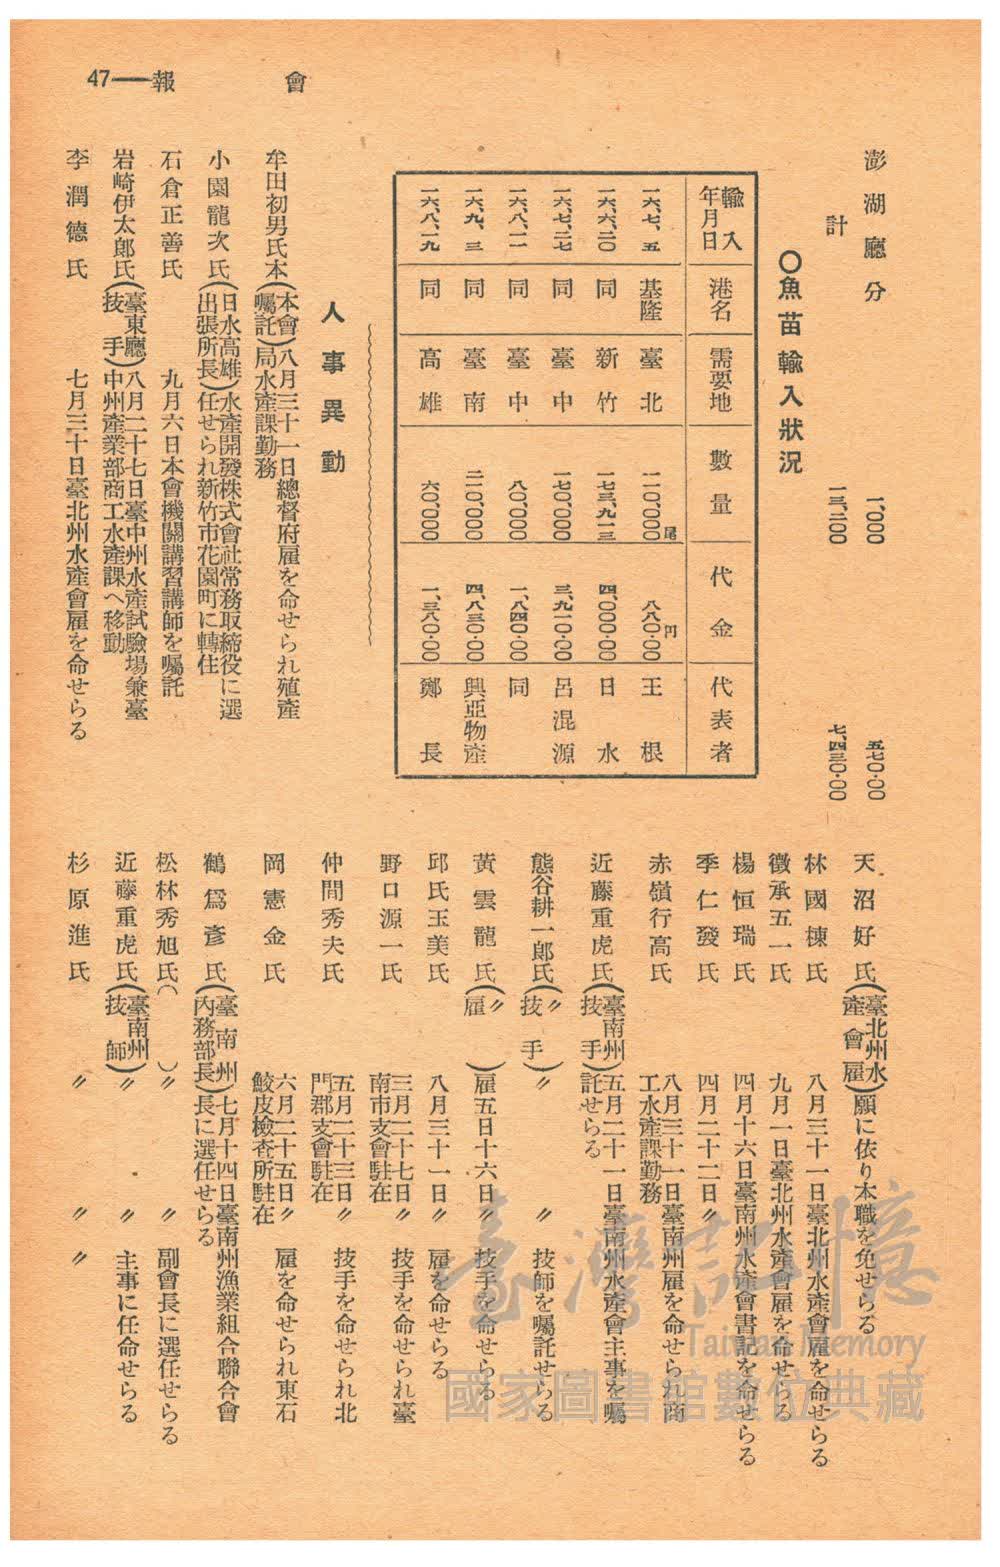 47――報　　會
澎湖廳分　一、〇〇〇　五七〇・〇〇
計　一三、二〇〇　七、四三〇・〇〇
〇魚苗輸入狀況
輸入年月日　港名　需要地　數量　代金　代表者
一六、七、五　基隆　臺北　一一〇、〇〇〇尾　八八〇・〇〇円　王根
一六、六、二〇　同　新竹　一七三、九一三　四、〇〇〇・〇〇　日水
一六、七、二七　同　臺中　一七〇、〇〇〇　三、九一〇・〇〇　呂混源
一六、八、一一　同　臺中　八〇、〇〇〇　一、八四〇・〇〇　同
一六、九、三　同　臺南　二一〇、〇〇〇　四、八三〇・〇〇　興亞物產
一六、八、一九　同　高雄　六〇、〇〇〇　一、三八〇・〇〇　鄭長
人事異動
牟田初男氏本（本會囑託）八月三十一日總督府雇を命せられ殖產
局水產課勤務
小園龍次氏（日水高雄出張所長）水產開發株式會社常務取締役に選
任せられ新竹市花園町に轉住
石倉正善氏　九月六日本會機關講習講師を囑託
岩崎伊太郞氏（臺東廳技手）八月二十七日臺中州水產試驗場兼臺
中州產業部商工水產課へ移動
李潤德氏　七月三十日臺北州水產會雇を命せらる
天沼好氏（臺北州水產會雇）願に依り本職を免せらる
林國棟氏　八月三十一日臺北州水產會雇を命せらる
徵承五一氏　九月一日臺北州水產會雇を命せらる
楊恒瑞氏　四月十六日臺南州水產會書記を命せらる
季仁發氏　四月二十二日〃
赤嶺行高氏　八月三十一日臺南州雇を命せられ商
工水產課勤務
近藤重虎氏（臺南州技手）五月二十一日臺南州水產會主事を囑
託せらる
熊谷耕一郞氏（〃技手）〃　〃　技師を囑託せらる
黃雲龍氏（〃雇）雇五日十六日〃　技手を命せらる
邱氏玉美氏　八月三十一日〃　雇を命せらる
野口源一氏　三月二十七日〃　技手を命せられ臺
南市支會駐在
仲間秀夫氏　五月二十三日〃　技手を命せられ北
門郡支會駐在
岡憲金氏　六月二十五日〃　雇を命せられ東石
鮫皮檢査所駐在
鶴爲彥氏（臺南州內務部長）七月十四日臺南州漁業組合聯合會
長に選任せらる
松林秀旭氏（　）〃　〃　副會長に選任せらる
近藤重虎氏（臺南州技師）〃　〃　主事に任命せらる
杉原進氏　〃　〃　〃
臺灣記憶
Taiwan Memory
國家圖書館數位典藏